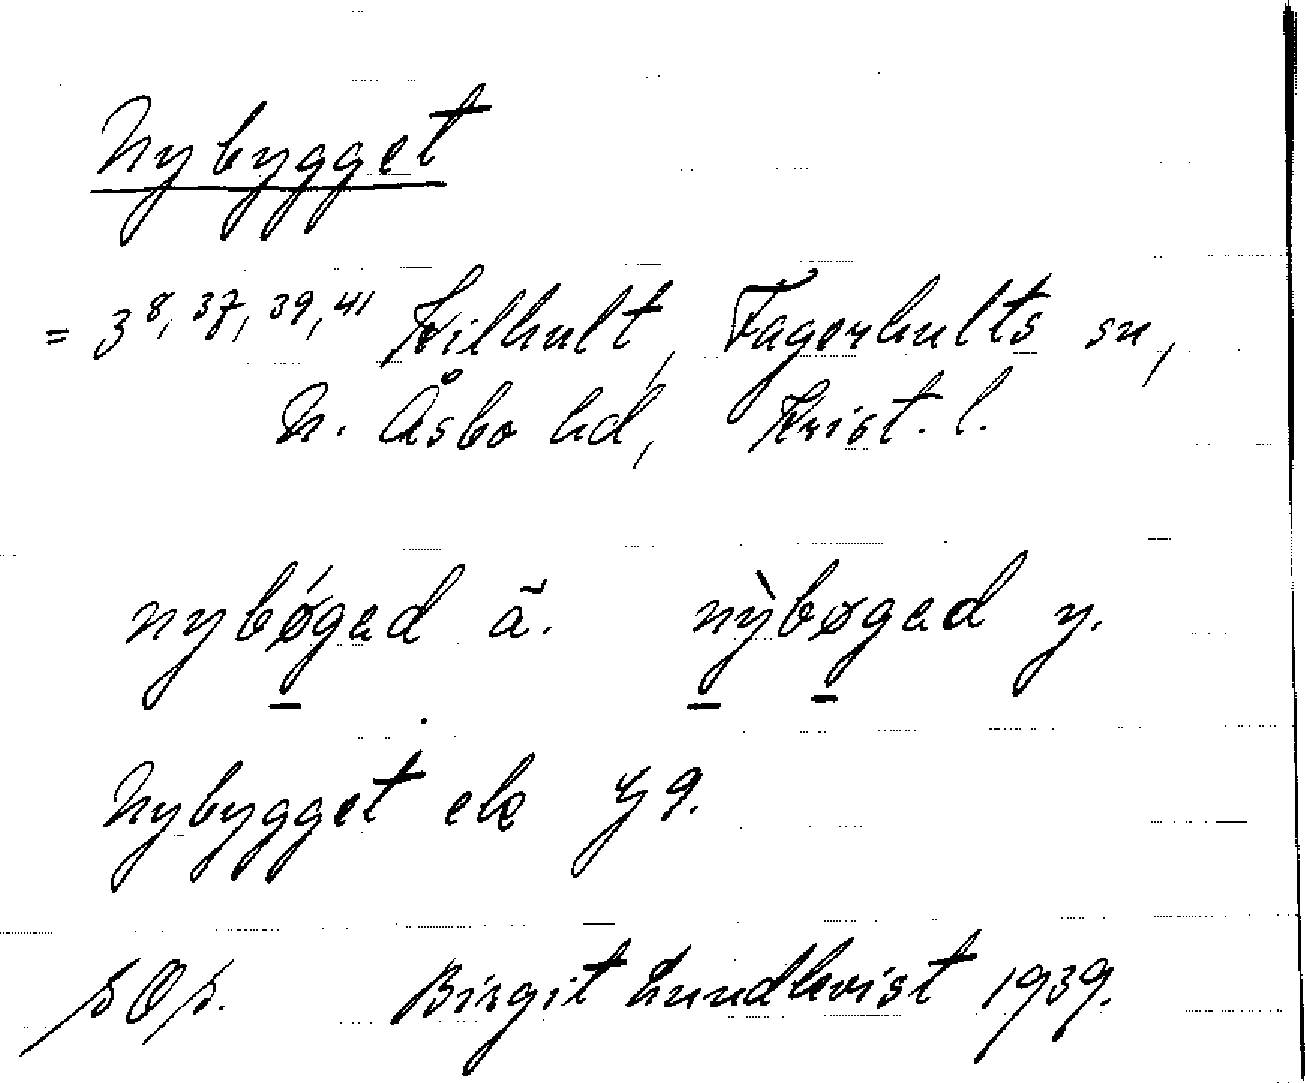 Nybygget
= 3 8, 37, 39, 41 Kilhult, Fagerhults sn,
N. Åsbo hd, Krist. l.
nybǿgad ä. nỳbøgad y.
Nybygget ek
Birgit Lundkvist 1939.